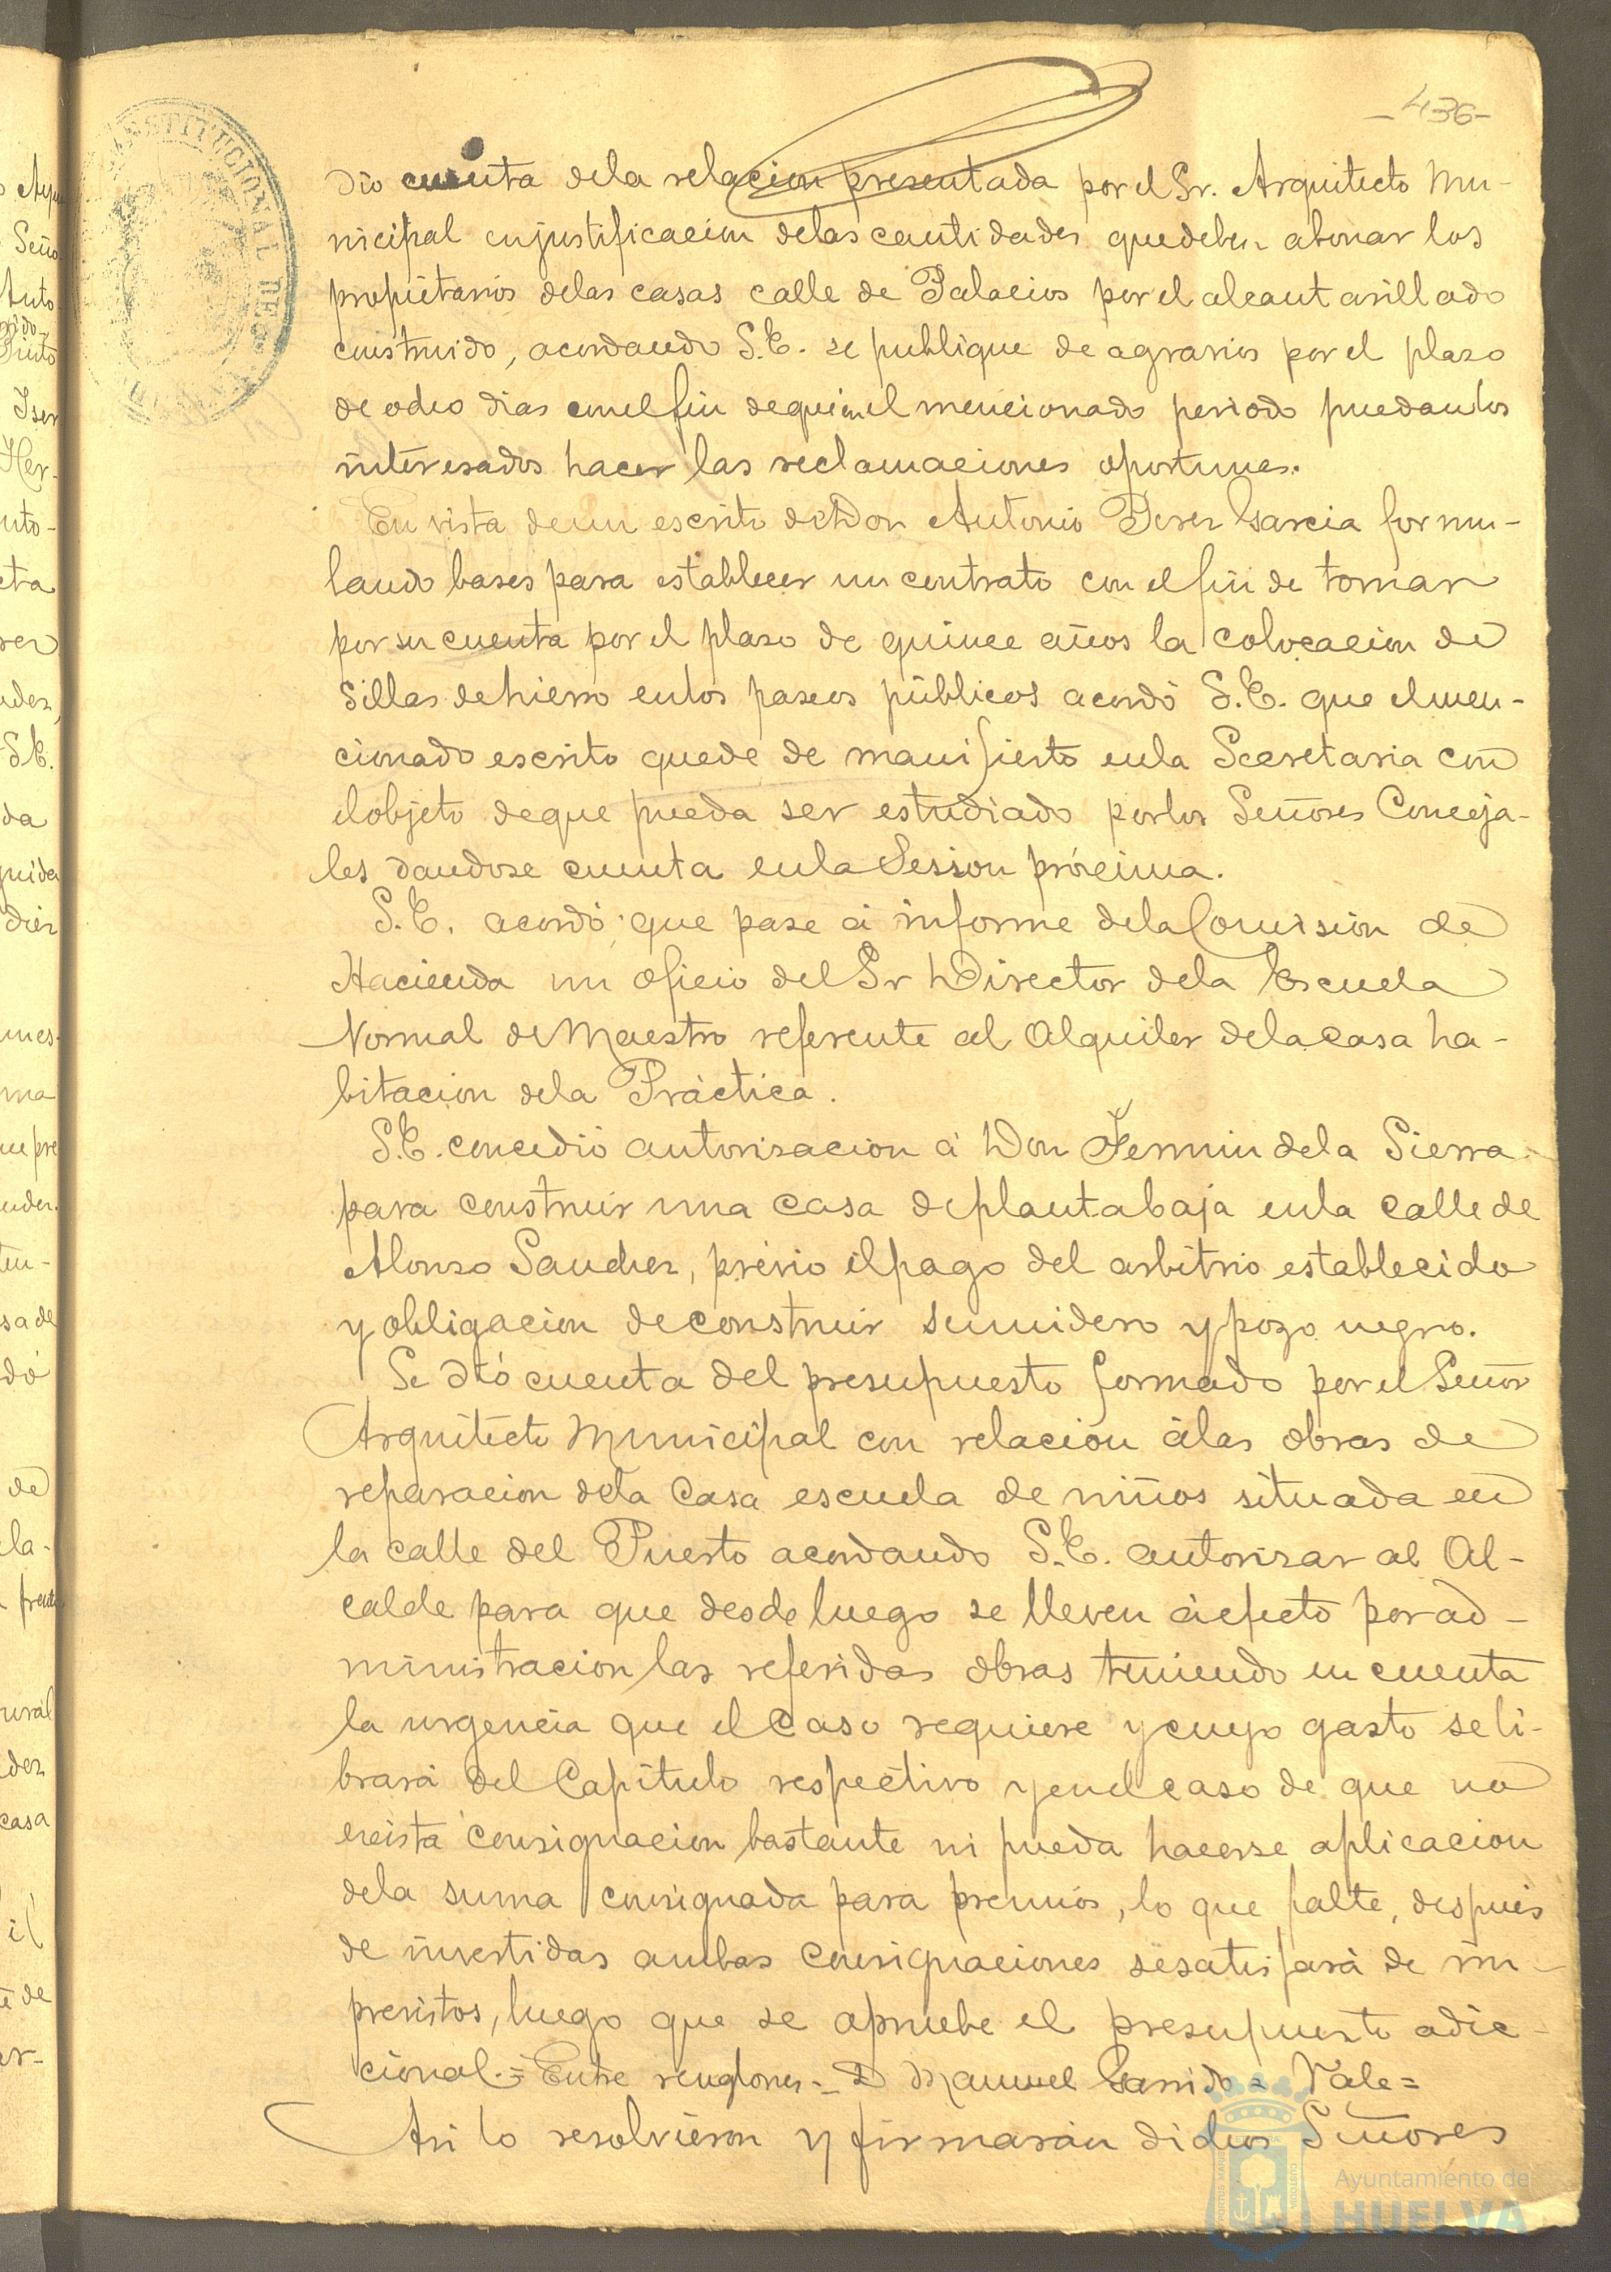 -436-
dio cuenta dela relacion presentada por el Sr. Arquitecto Mu-
nicipal enjustificacion delas cantidades quedeben abonar los
propietarios delas casas calle de Palacios por el alcantarillado
construido, acordando S.E. se publique de agravios por el plazo
de ocho dias conelfin dequeenel mencionado periodo puedanlos
interesados hacer las reclamaciones oportunas.
En vista deun escrito deDon Antonio Perez Garcia formu-
lando bases para establecer un contrato con el fin de tomar
por su cuenta por el plazo de quince años la colocacion de
sillas dehierro enlos paseos públicos acordó S.E. que elmen-
cionado escrito quede de manifiesto enla Secretaria con
elobjeto deque pueda ser estudiado porlos Señores Conceja-
les dandose cuenta enla Session próxima.
S.E. acordó que pase á informe dela Comision de
Hacienda un oficio del Sr Director dela Escuela
Normal de Maestro referente al Alquiler delacasa ha-
bitacion dela Práctica.
S.E. concedió autorizacion á Don Fermin dela Sierra
para construir una casa deplantabaja enla calle de
Alonso Sanchez, prévio elpago del arbitrio establecido
y obligacion deconstruir sumidero y pozo negro.
Se dió cuenta del presupuesto formado por el Señor
Arquitecto Municipal con relacion álas obras de
reparacion dela Casa escuela de niños situada en
la calle del Puerto acordando S.E. autorizar al Al-
calde para que desde luego se lleven áefecto por ad-
ministracion las referidas obras teniendo en cuenta
la urgencia que el caso requiere y cuyo gasto se li-
brará del Capítulo respectivo y enel caso de que no
exista consignacion bastante ni pueda hacerse aplicacion
dela suma consignada para premios, lo que falte, despues
de invertidas ambas consignaciones sesatisfará de im-
previstos, luego que se apruebe el presupuesto adic-
cional.= Entre renglones.= D Manuel Garrido = Vale=
Asi lo resolvieron y firmarán dichos Señores
Ayuntamiento de
HUELVA